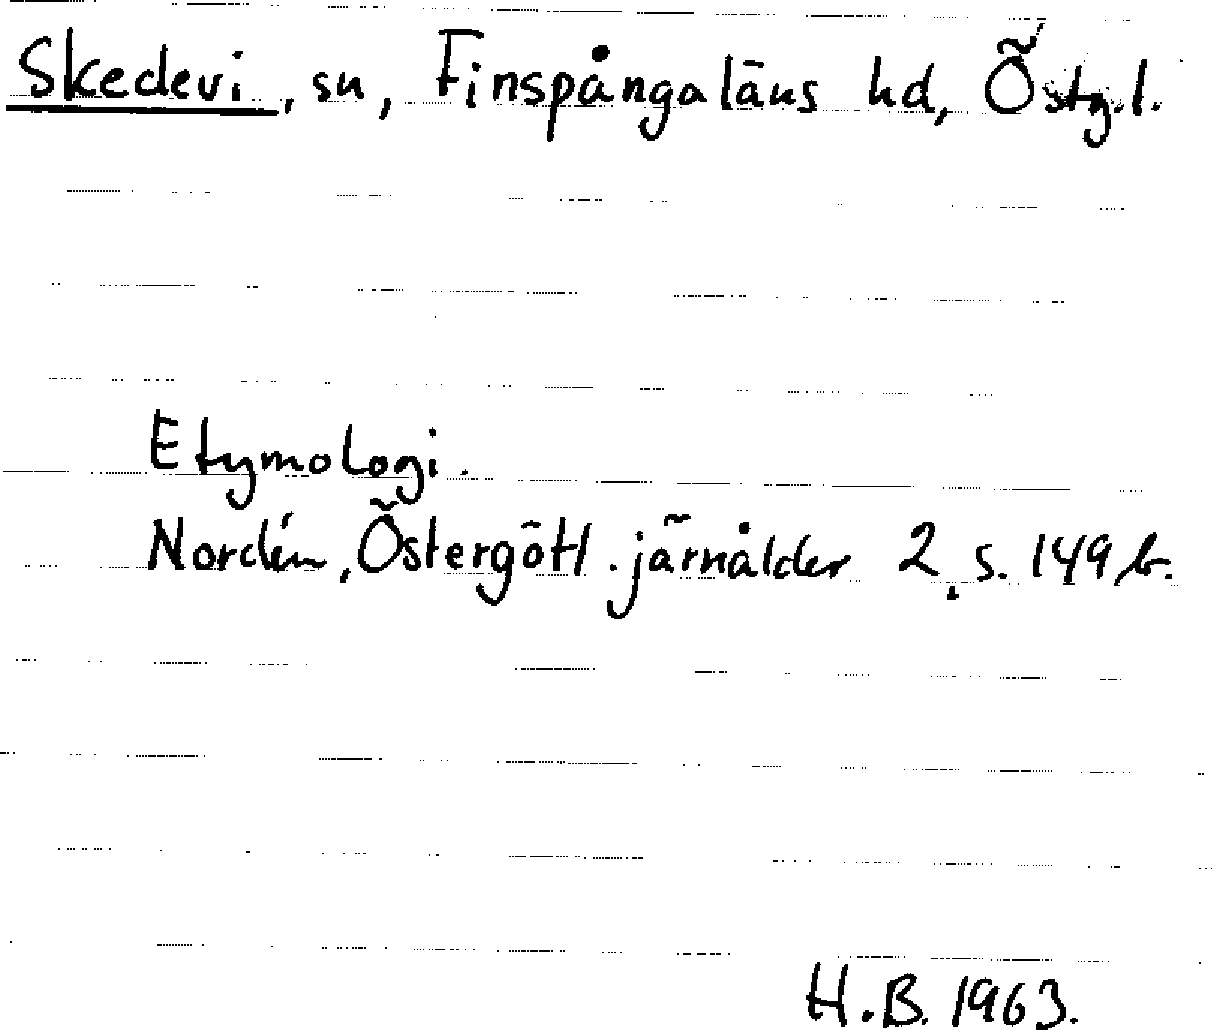 Skedevi, sn, Finspångaläns hd, Östg.l.
Etymologi.
Nordén, Östergötl. järnålder 2, s. 149 b.
H.B. 1963.